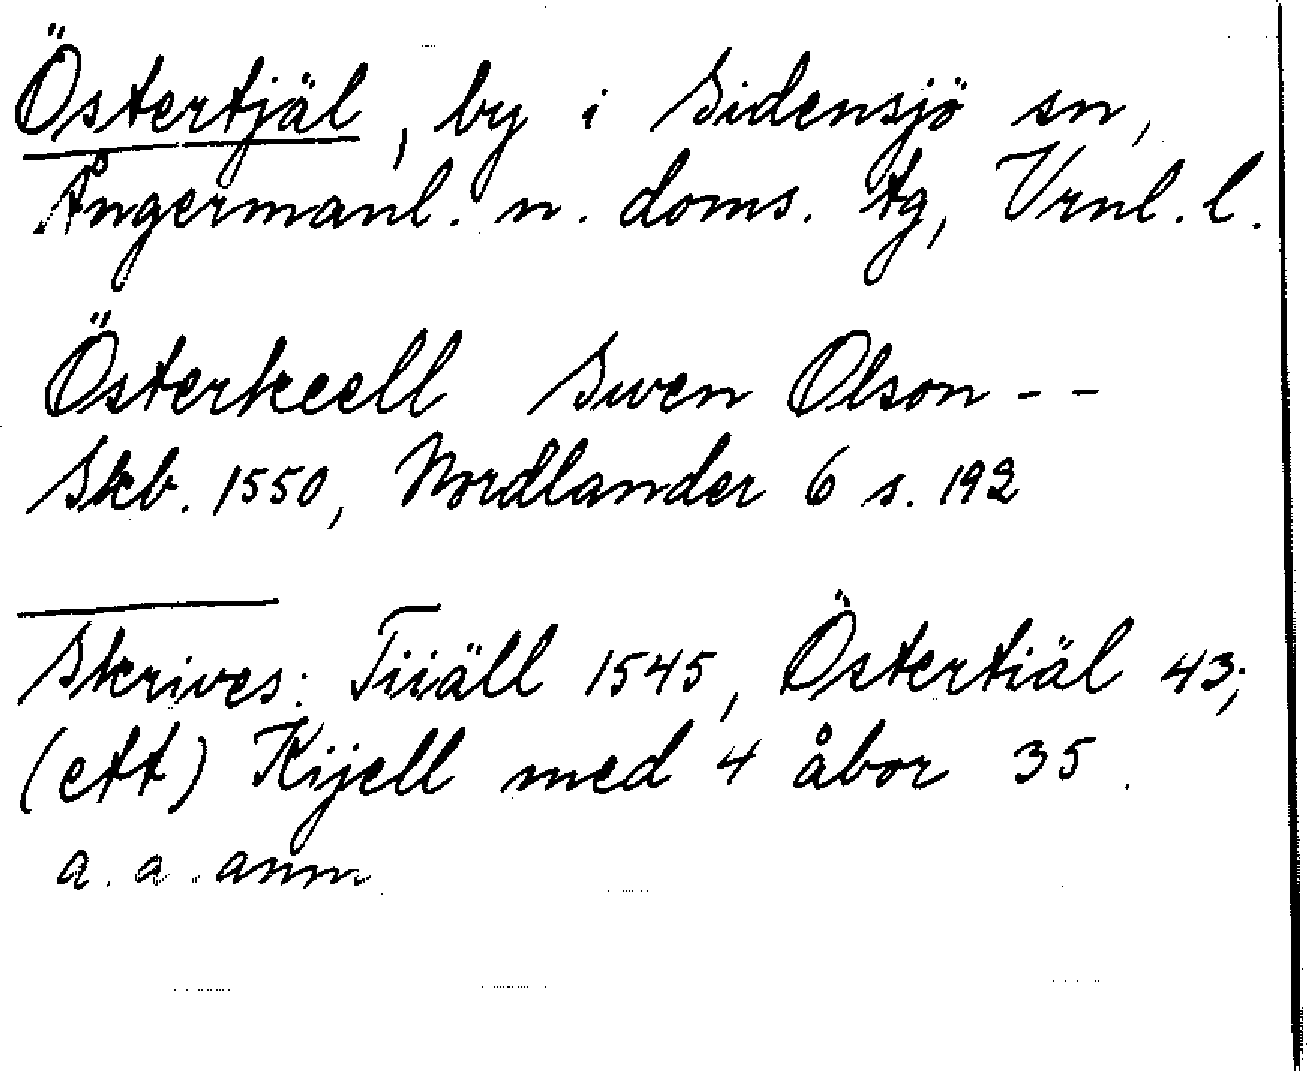 Östertjäl, by i Sidensjö sn,
Ångermanl. n. doms. tg, Vrnl. l.
Österkeell Swen Olson - -
Skb. 1550, Nordlander 6 s. 192
Skrives: Tiiäll 1545, Östertiäl 43;
(ett) Kijell med 4 åbor 35.
a. a. anm